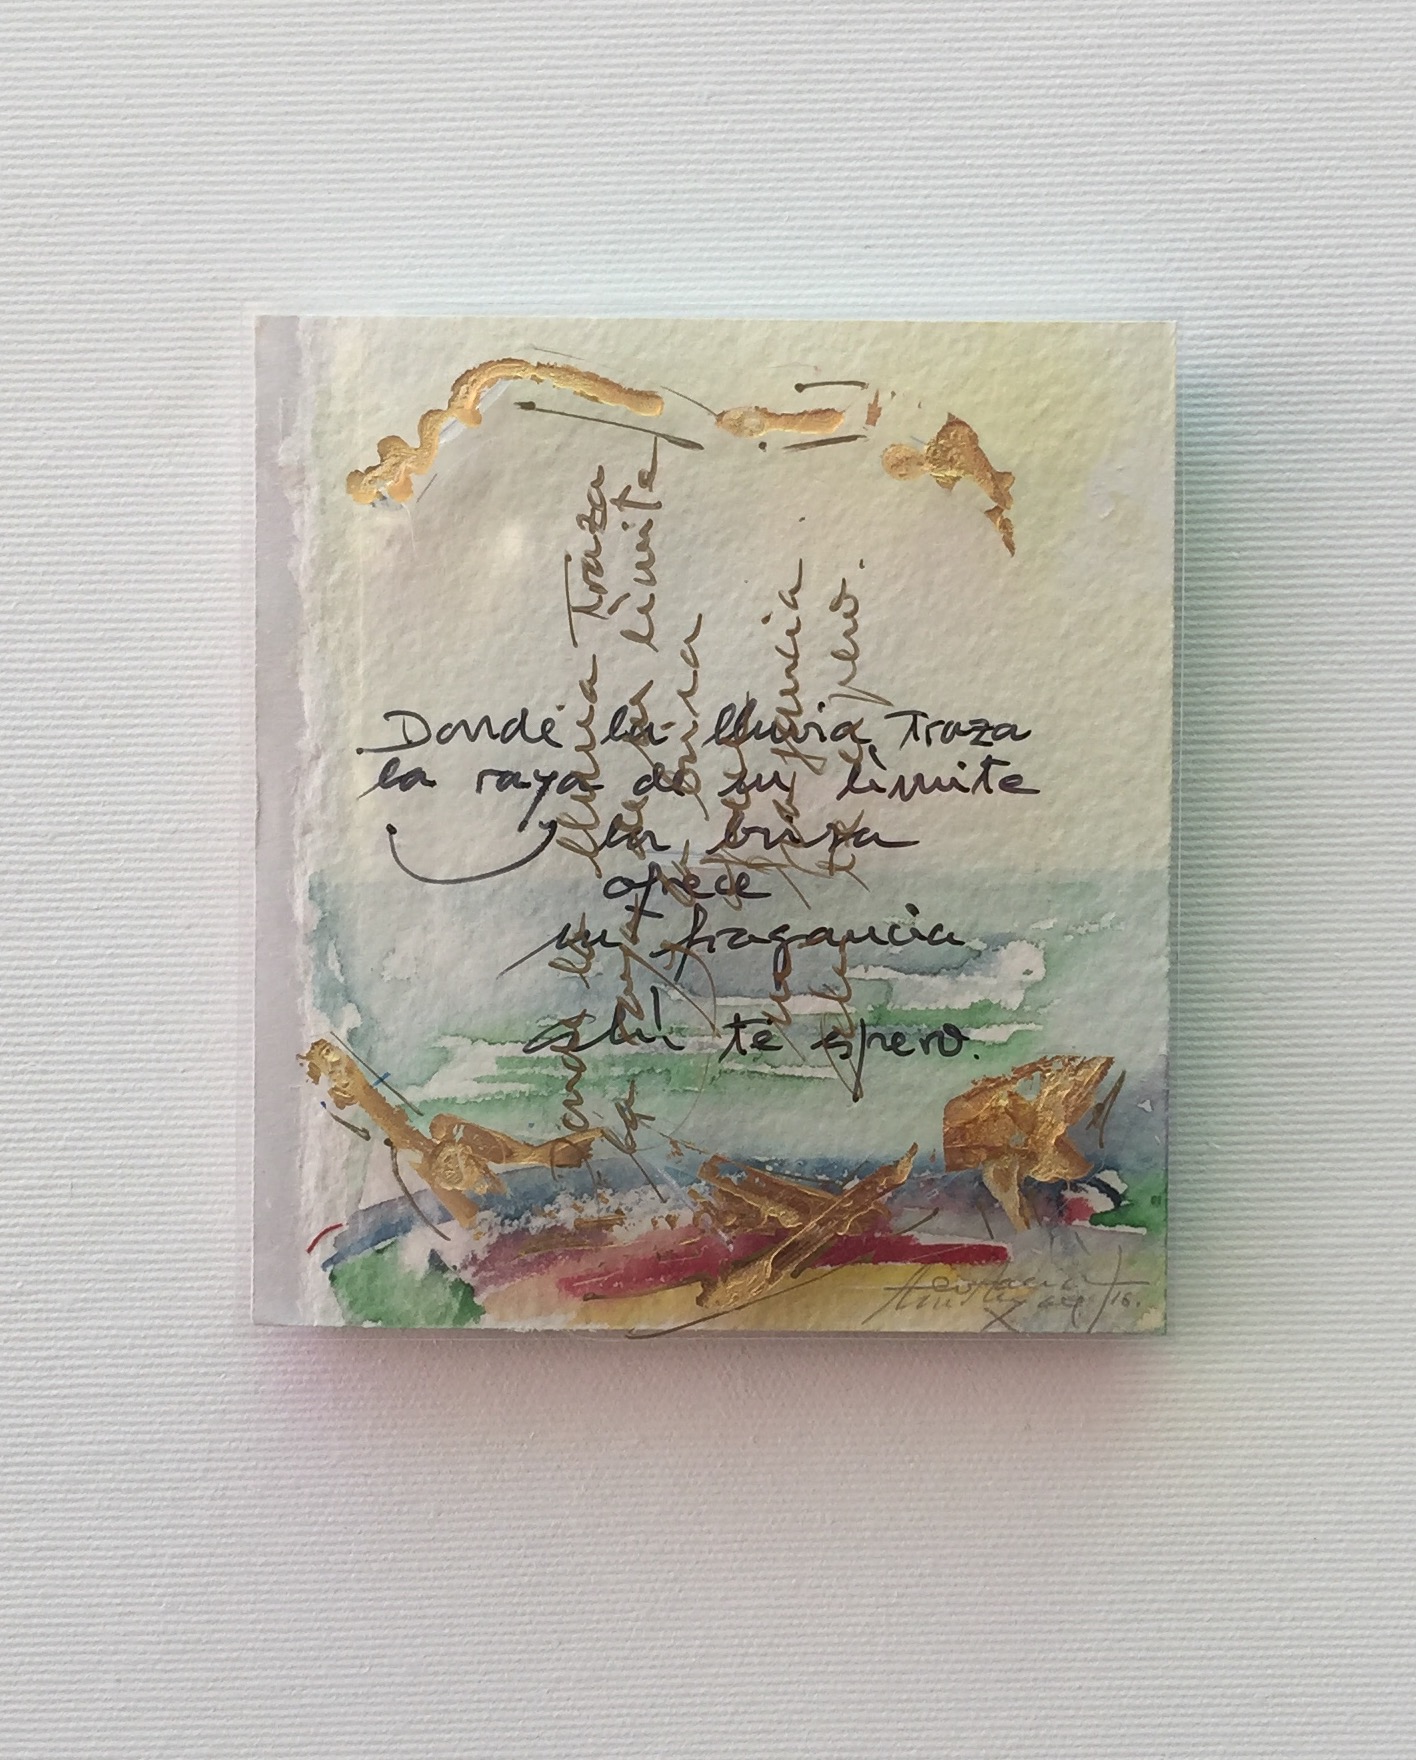 Donde la lluvia Traza
la raya de su lìmite
la brisa
ofrece
su fragancia
ahí te espero.
Donde la lluvia Traza
la raya de su lìmite
la brisa
ofrece
su fragancia
ahí te espero.
16.